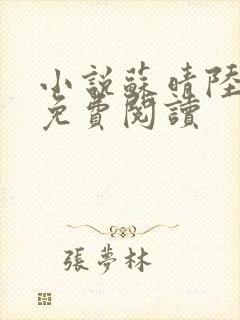 小說蘇晴陸
免費閱讀
張夢林